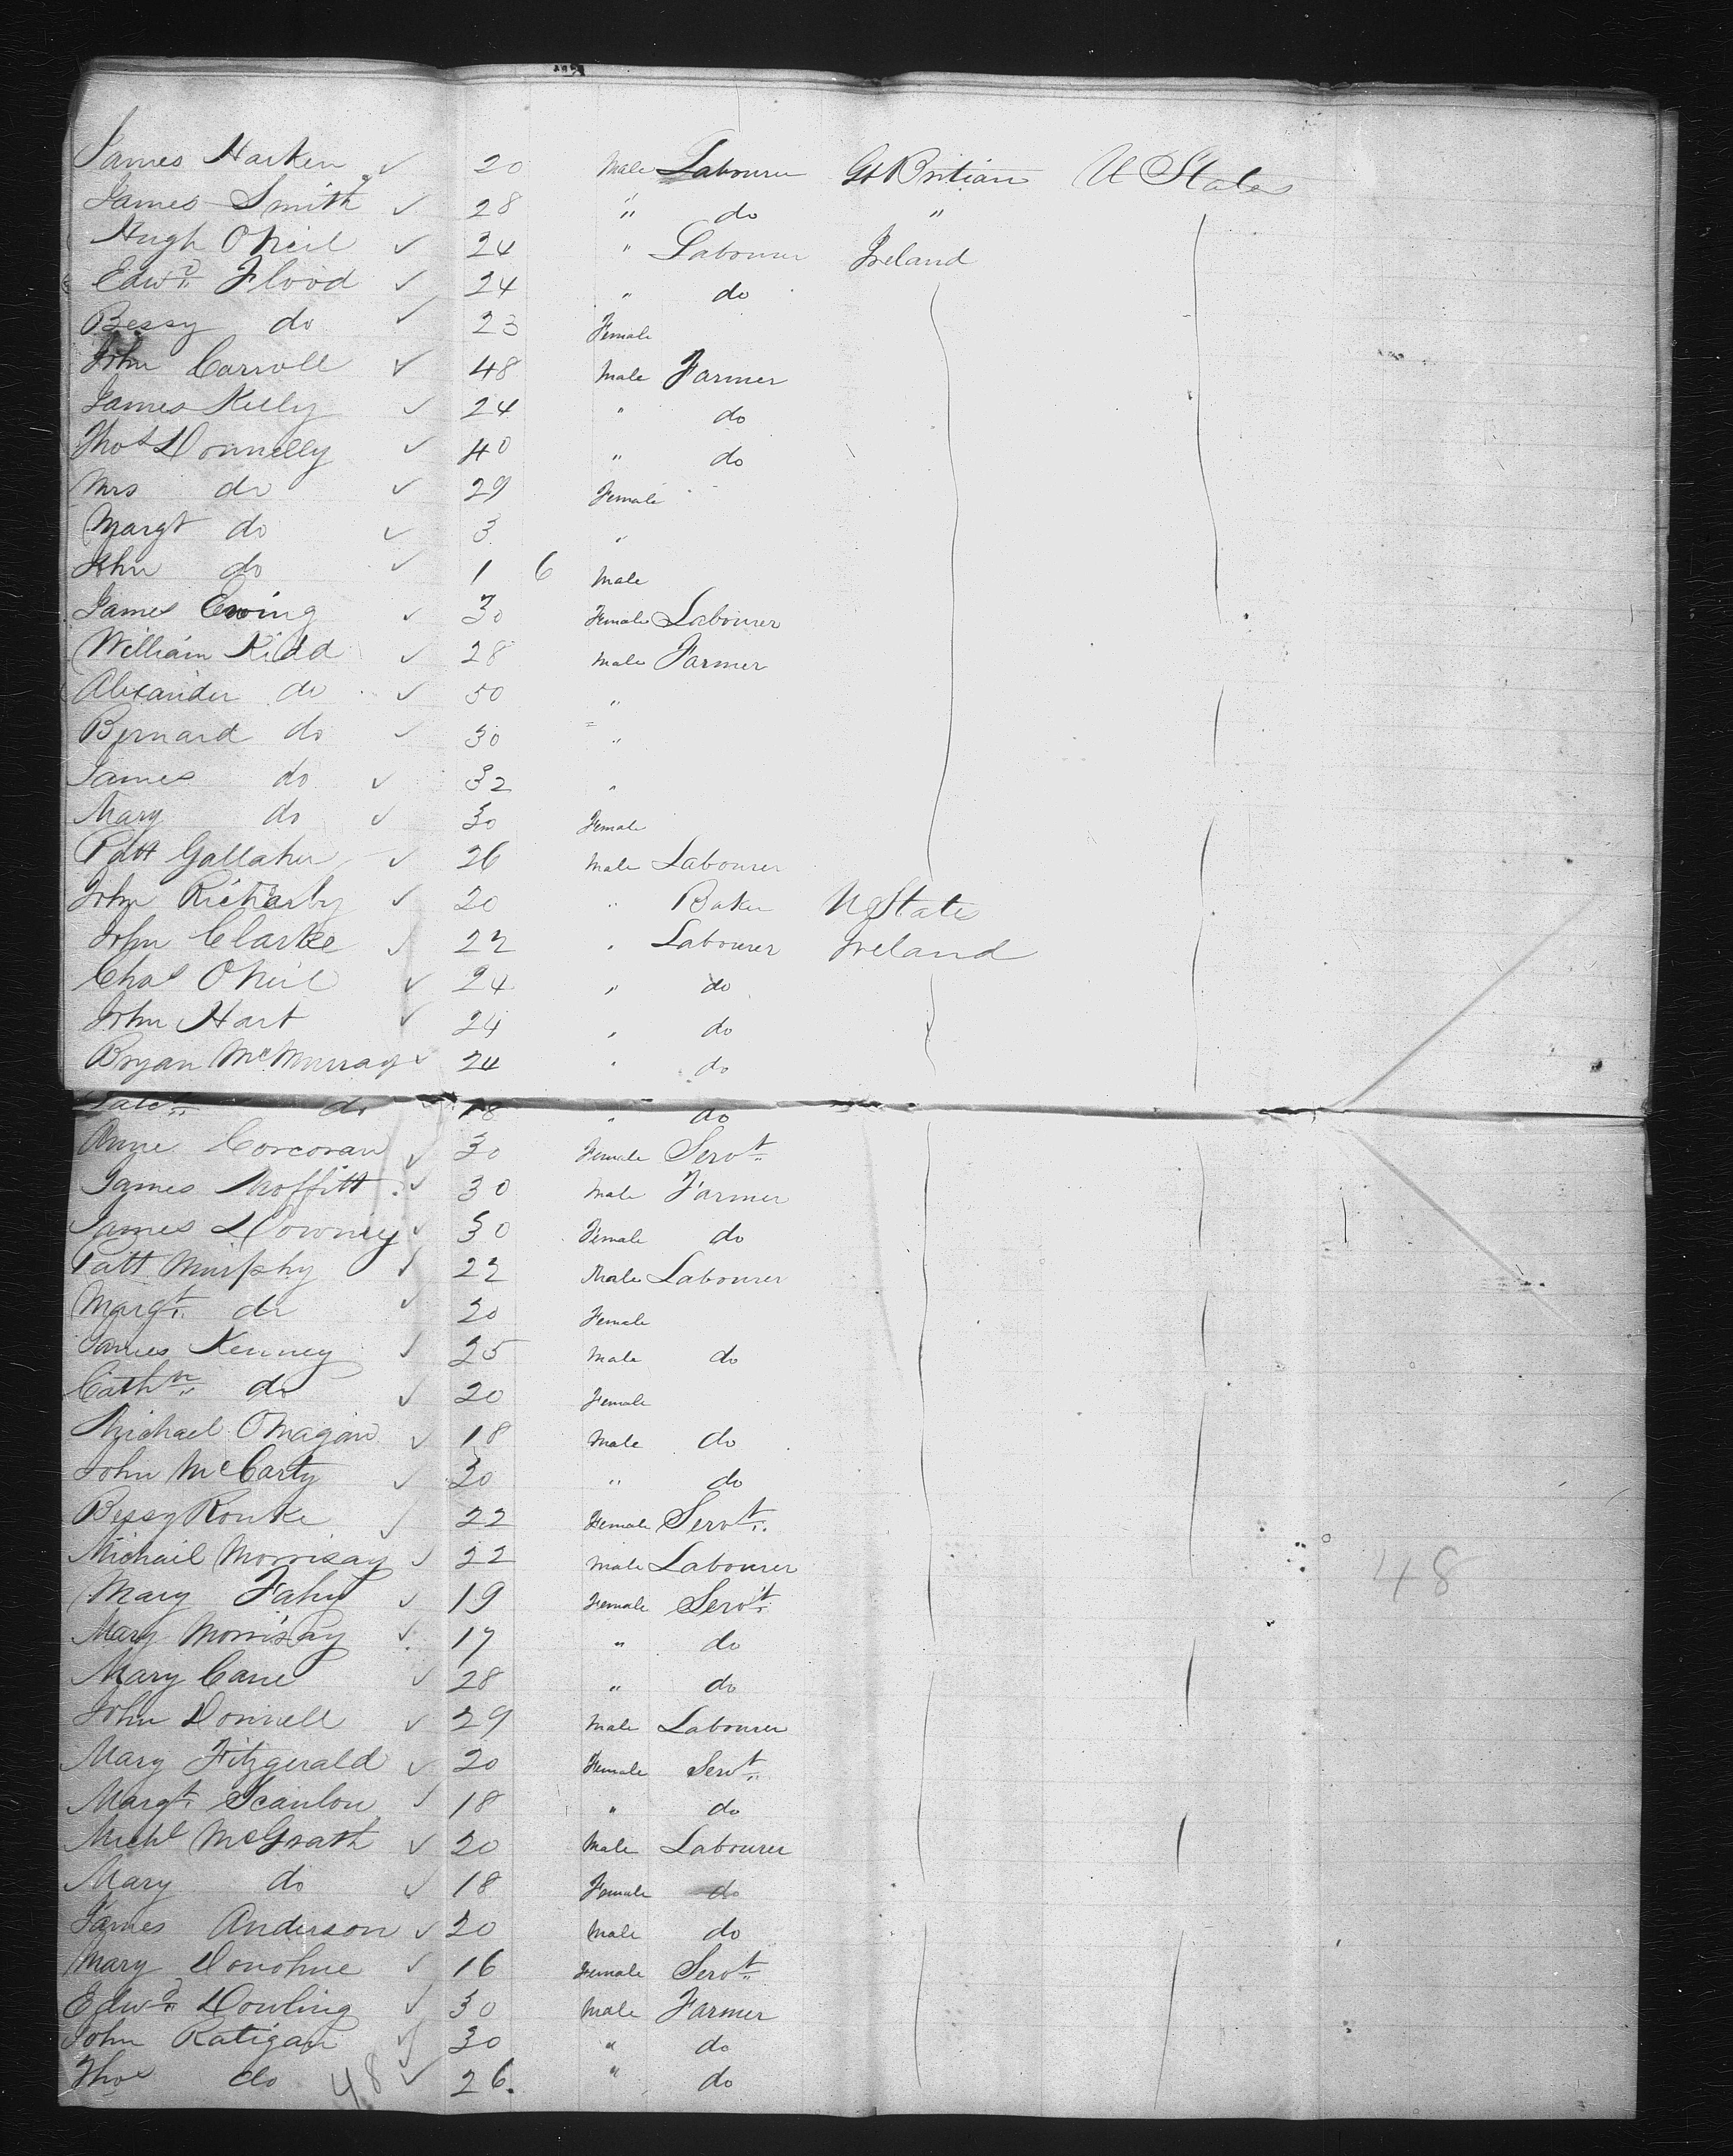 James Harken ✓ 20 Male Labourer Gt Britian U States
James Smith ✓ 28 " do "
Hugh ONeil ✓ 24 " Labourer Ireland
Edwd Flood ✓ 24 " do
Bessy do ✓ 23 Female
John Carroll ✓ 48 Male Farmer
James Kelly ✓ 24 " do
Thos Donnelly ✓ 40 " do
Mrs do ✓ 29 Female
Margt do ✓ 3 "
John do ✓ 1 6 Male
James Ewing ✓ 30 Female Labourer
William Kidd ✓ 28 Male Farmer
Alexander do ✓ 50 "
Bernard do ✓ 30 "
James do ✓ 32 "
Mary do ✓ 30 Female
Patt Gallaher ✓ 26 Male Labourer
John Richarby ✓ 20 " Baker U States
John Clarke ✓ 22 " Labourer Ireland
Chas ONeil ✓ 24 " do
John Hart ✓ 24 " do
Bryan McMurray ✓ 24 " do
do ✓ 18 " do
Anne Corcoran ✓ 30 Female Servt
James Moffitt ✓ 30 Male Farmer
James Downey ✓ 30 Female do
Patt Murphy ✓ 22 Male Labourer
Margt do ✓ 20 Female
James Kenney ✓ 25 Male do
Cathn do ✓ 20 Female
Michael OMagan ✓ 18 Male do
John McCarty ✓ 30 " do
Bessy Rourke ✓ 22 Female Servt
Michail Morrisay ✓ 22 Male Labourer 48
Mary Fahy ✓ 19 Female Servt
Mary Morrisay ✓ 17 " do
Mary Cane ✓ 28 " do
John Donnell ✓ 29 Male Labourer
Mary Fitzgerald ✓ 20 Female Servt
Margt Scanlon ✓ 18 " do
Michl McGrath ✓ 20 Male Labourer
Mary do ✓ 18 Female do
James Anderson ✓ 20 Male do
Mary Donohue ✓ 16 Female Servt
Edwd Dowling ✓ 30 Male Farmer
John Ratigan ✓ 30 " do
Thos do 48 ✓ 26. " do